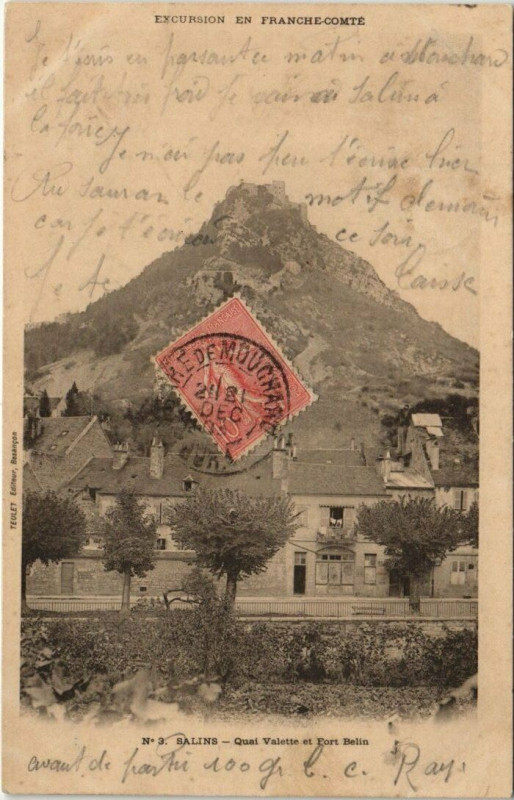 EXCURSION EN FRANCHE-COMTÉ
Je en passant ce matin à Mouchard
il fait très froid Je vais à Salins à
la foire
Je n'ai pas pu t'écrire hier
Tu sauras le motif demain
car je t'écrirai ce soir
Je te laisse
GARE DE MOUCHARD
21
DEC
JURA
10
TEULET Editeur, Besançon
N° 3. SALINS — Quai Valette et Fort Belin
avant de partir 100 gr b. c. Rays